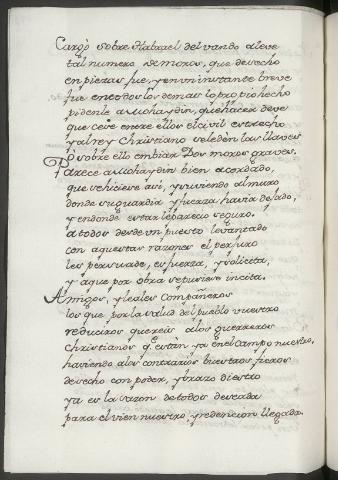 Cargò sobre Habrael del vando aleve
tal numero de moros, que de hecho
en piezas fue, y en un instante breve
fue en todos los demas lo propio hecho
pidenle a Mohaydin, que hacer deve
que cese entre ellos el civil estrecho
y al rey Christiano se le den las llaves
Y sobre ello embiar Dos moros graves.
Parece a Mohaydin bien acordado,
que se hiciese asi, y subiendo al muro
donde su guardia y fuerza havia dejado,
y en donde estar le parecio seguro.
a todos desde un puesto levantado
con aquestas razones el perjuro
les persuade, esfuerza, y solicita,
y a que por obra se pusiese incita.
Amigos, y leales Compañeros
los que por la salud del pueblo vuestro
reduciros quereis a los guerreros
Christianos q. estàn ya en el campo nuestro,
haviendo a los contrarios buestros fieros
desecho con poder, y brazo diestro
ya es la sazon de todos deseada
para el vien nuestro, y redencion llegada.